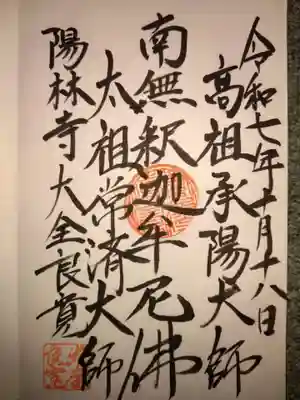 令和七年十月十八日
高祖承陽大師
南無釈迦牟尼佛
太祖常済大師
陽林寺大全良寛